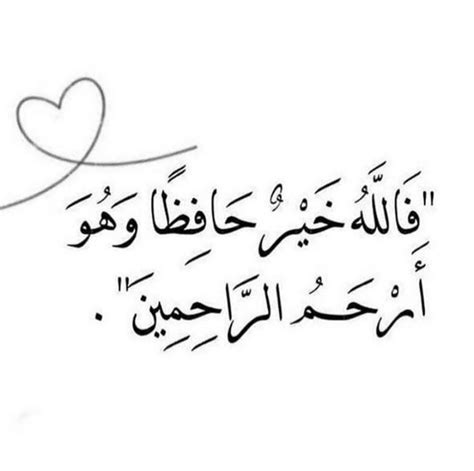 "فَاللَّهُ خَيْرٌ حَافِظًا وَهُوَ
أَرْحَمُ الرَّاحِمِينَ" .